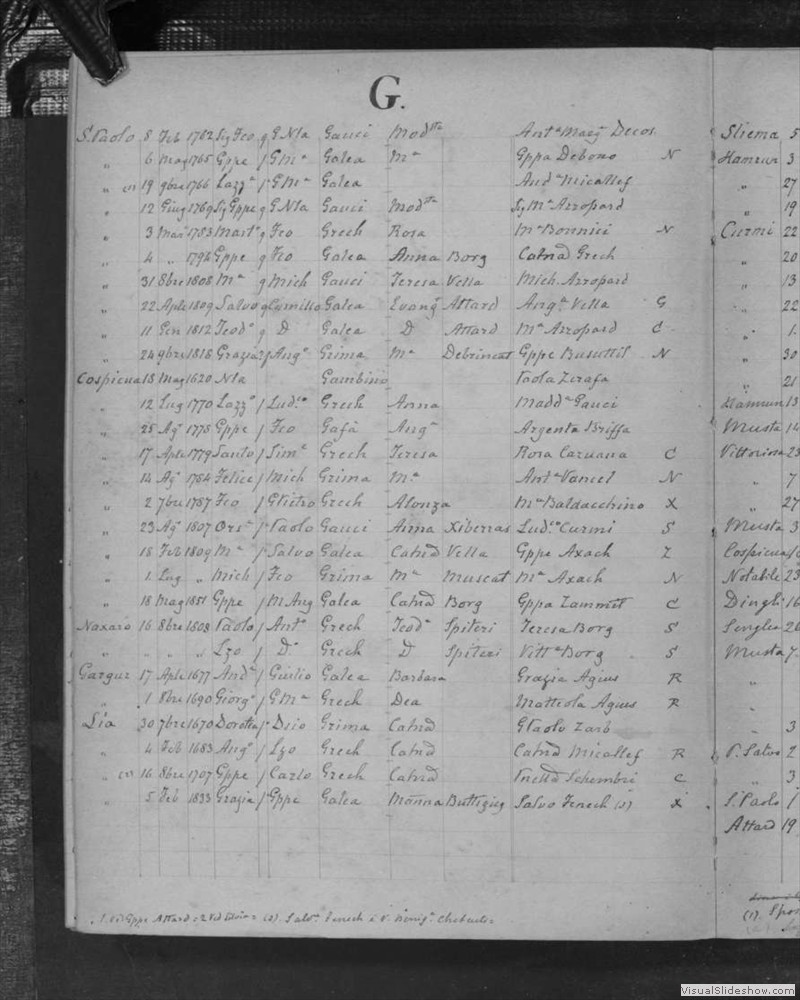 G.
S. Paolo 8 Feb 1762 Sig Feo g G Nla Gauci Mod Ant Decos
" 6 Mag 1765 Gppe f GMa Galea Ma Gppa Debono N
" 19 9bre 1766 f GMa Galea And Micallef
" 12 Giug 1769 Sig Gppe g G Nla Gauci Mod Sg Ma Azzopard
" 3 Mar 1783 g Feo Grech Rosa Ma Bonnici N
" 4 " 1794 Gppe g Feo Galea Anna Borg Catnd Grech
" 31 8bre 1808 Ma g Mich Gauci Teresa Vella Mich. Azzopard
" 22 Aple 1809 Salvo g Camillo Galea Evang Attard Ang Vella G
" 11 Gen 1812 Teod g D Galea D Attard Ma Azzopard C
" 24 9bre 1818 Grazia f Ang Grima Ma Debrincat Gppe Busuttil N
Cospicua 18 Mag 1620 Nla Gambino Paola Zerafa
" 12 Lug 1770 f Lud Grech Anna Madd Gauci
" 25 Ag 1775 Gppe f Feo Gafà Ang Argenta Briffa
" 17 Aple 1779 f Sim Grech Teresa Rosa Caruana C
" 14 Ag 1784 Felice f Mich Grima Ma Ant N
" 2 7bre 1787 Feo f GPietro Grech Alonza Ma Baldacchino X
" 23 Ag 1807 f Paolo Gauci Anna Xiberras Lud Curmi S
" 18 Feb 1809 Ma f Salvo Galea Catnd Vella Gppe Axach Z
" 1 Lug " Mich f Feo Grima Ma Muscat Ma Axach N
" 18 Mag 1851 Gppe f M Ang Galea Catnd Borg Gppa Zammit C
Naxaro 16 8bre 1808 Paolo f Ant Grech Teod Spiteri Teresa Borg S
" " " " Lzo f D Grech D Spiteri Vitt Borg S
Gargur 17 Aple 1677 And f Giulio Galea Barbara Grazia Agius R
" 1 8bre 1690 Giorg f GMa Grech Dea Matteola Agius R
Lia 30 7bre 1670 Dorotea f Grima Catnd GPaolo Zarb
" 4 Feb 1683 Ang f Lzo Grech Catnd Catnd Micallef R
" 16 8bre 1707 Gppe f Carlo Grech Catnd Schembri C
" 5 Feb 1833 Grazia f Gppe Galea Buttigieg Salvo Fenech X
Gppe Attard Fenech
Sliema 5
Hamrun 3
" 27
" 19
Curmi 22
" 20
" 13
" 22
" 1
" 30
" 21
Hamrun 13
Musta 14
Vittoriosa 23
" 7
" 27
Musta 3
Cospicua
Notabile 23
Dingli 16
Senglea 26
Musta 7
"
"
" 3
P. Salvo 2
" 3
S. Paolo 1
Attard 19
VisualSlideshow.com